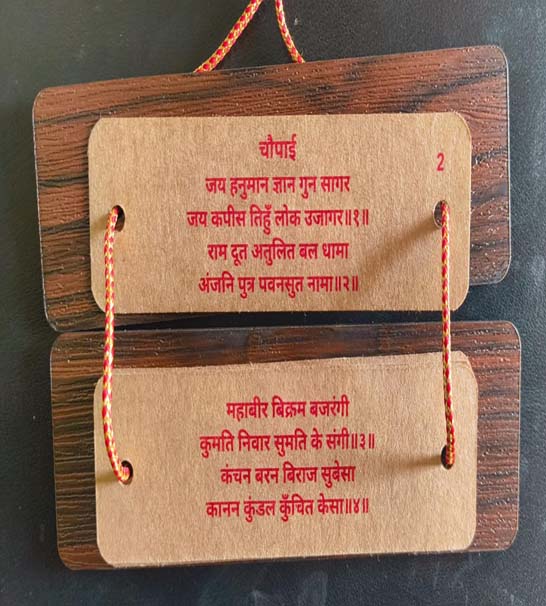 चौपाई
2
जय हनुमान ज्ञान गुन सागर
जय कपीस तिहुँ लोक उजागर॥१॥
राम दूत अतुलित बल धामा
अंजनि पुत्र पवनसुत नामा॥२॥
महाबीर बिक्रम बजरंगी
कुमति निवार सुमति के संगी॥३॥
कंचन बरन बिराज सुबेसा
कानन कुंडल कुँचित केसा॥४॥